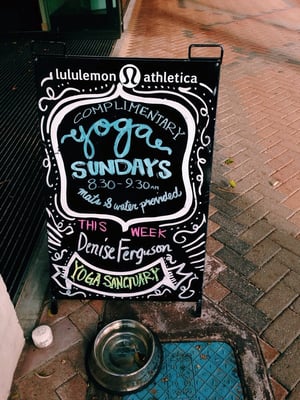 lululemon athletica
COMPLIMENTARY
yoga
SUNDAYS
8.30 - 9.30 AM
mats & water provided
THIS WEEK
Denise Ferguson
YOGA SANCTUARY